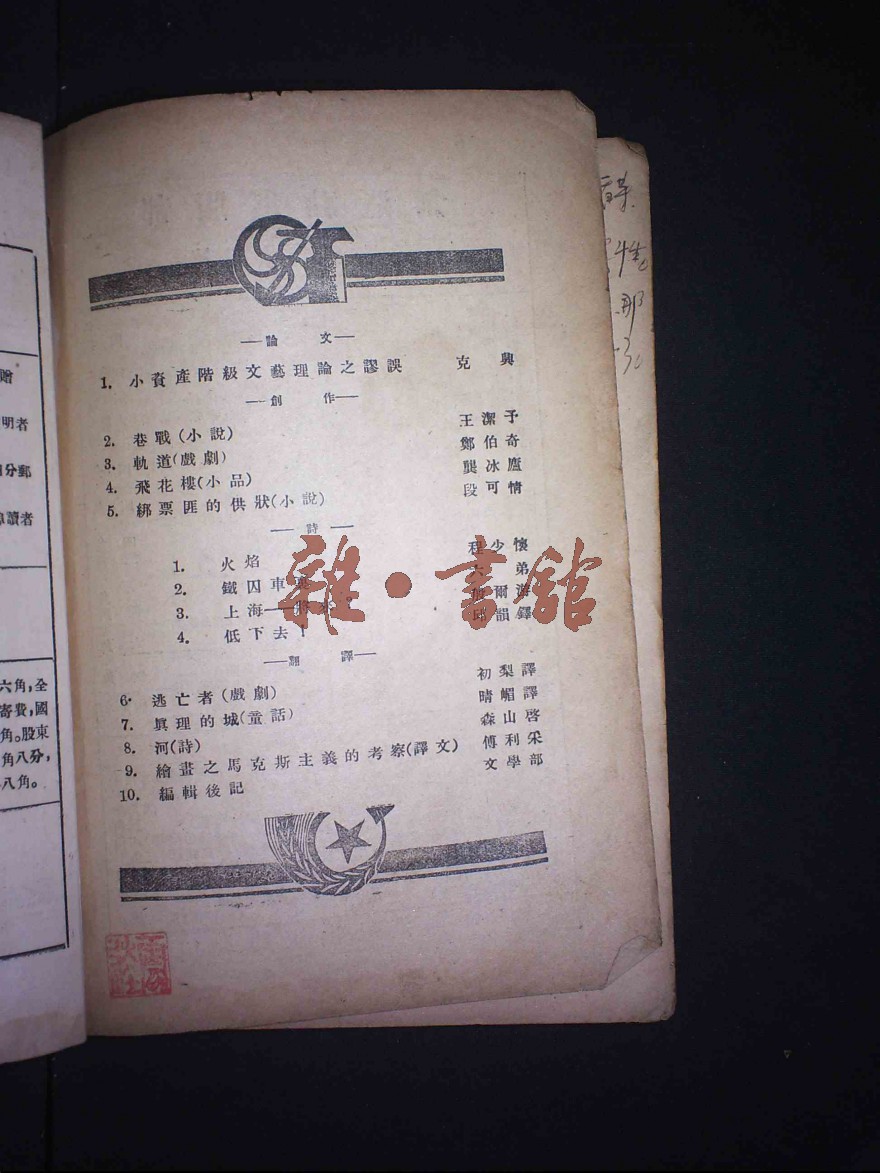 贈
明者
分郵
讀者
六角,全
寄費,國
角。股東
角八分,
八角。
—論 文—
1. 小資產階級文藝理論之謬誤 克興
—創 作—
2. 巷戰(小說) 王潔予
3. 軌道(戲劇) 鄭伯奇
4. 飛花樓(小品) 龔冰廬
5. 綁票匪的供狀(小說) 段可情
—詩—
1. 火焰 程少懷
2. 鐵囚車 弟
3. 上海— 爾游
4. 低下去! 邱韻鐸
—翻 譯—
6. 逃亡者(戲劇) 初梨譯
7. 眞理的城(童話) 晴嵋譯
8. 河(詩) 森山啓
9. 繪畫之馬克斯主義的考察(譯文) 傅利采
10. 編輯後記 文學部
雜·書舘
性
那